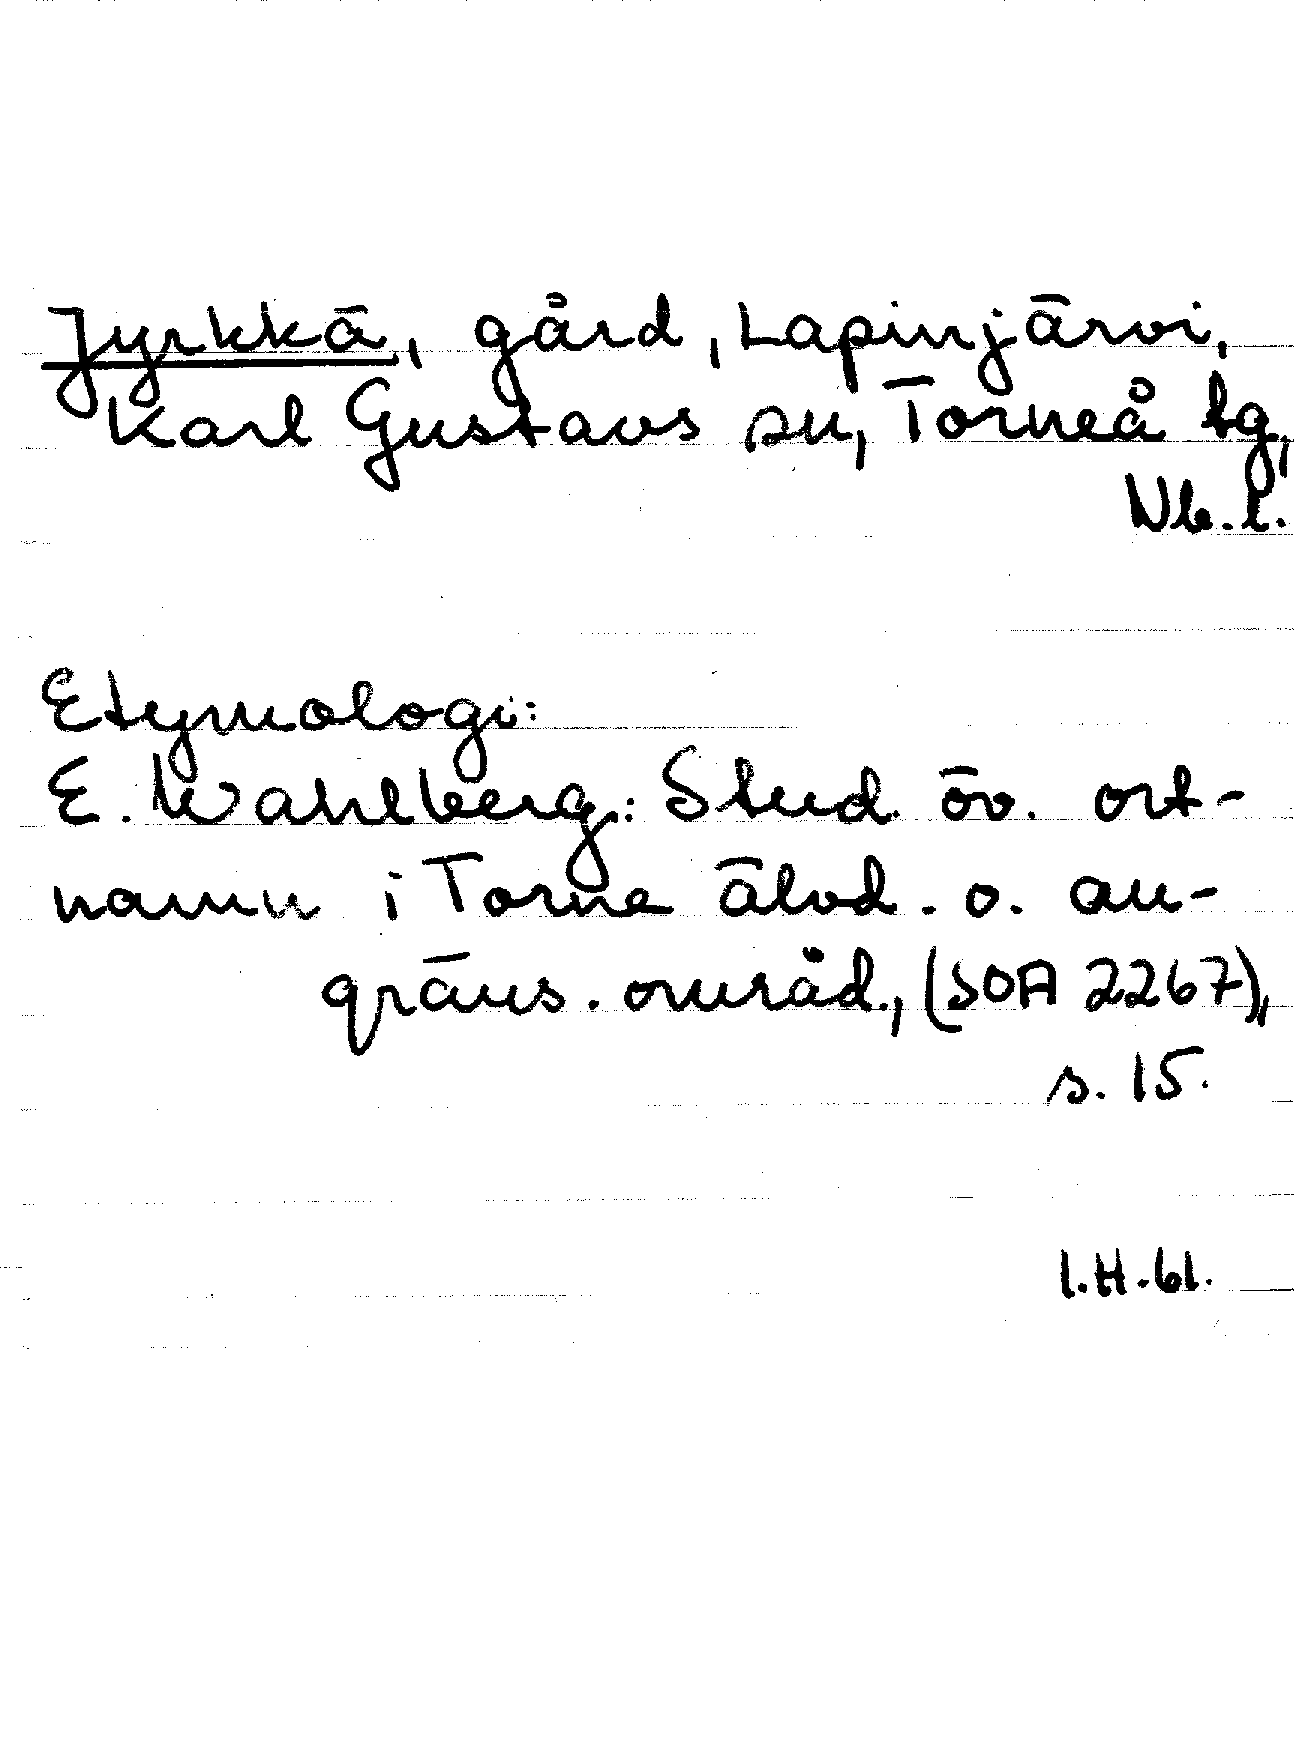 Jyrkkä, gård, Lapinjärvi,
Karl Gustavs sn, Torneå tg,
Nb. l.
Etymologi:
E. Wahlberg: Stud. öv. ort-
namn i Torne älvd. o. an-
gräns. områd., (SOA 2267),
s. 15.
I.H.61.